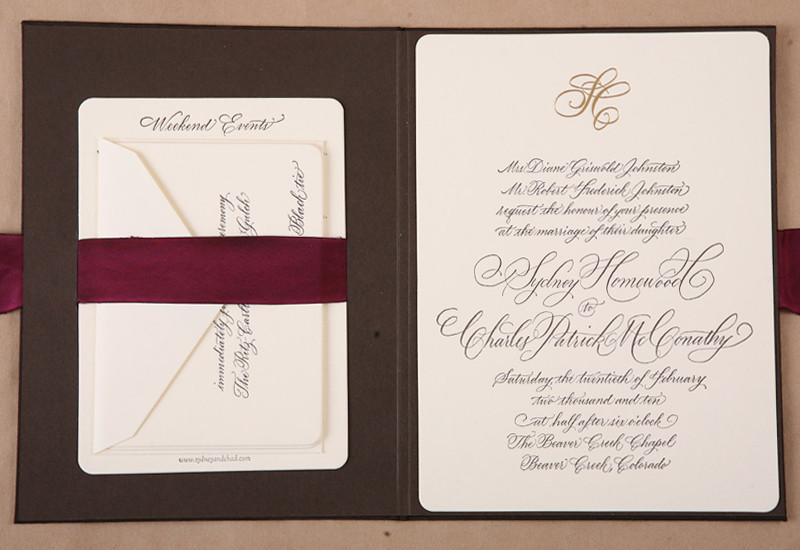 Weekend Events
Black tie
immediately
ceremony
The Ritz Carl
Gulch
www.sydneyandchad.com
Mrs. Diane Griswold Johnston
Mr. Robert Frederick Johnston
request the honour of your presence
at the marriage of their daughter
Sydney Homewood
to
Charles Patrick McConathy
Saturday, the twentieth of February
two thousand and ten
at half after six o'clock
The Beaver Creek Chapel
Beaver Creek, Colorado